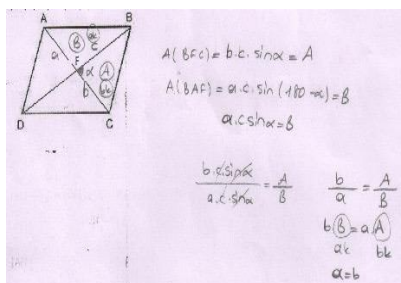 A B
B ak
a c
F α A
b bk
D C
A(BFC) = b.c. sinα = A
A(BAF) = a.c. sin(180-α) = B
a.c sinα = B
b.c.sinα / a.c.sinα = A / B
b / a = A / B
b.B = a.A
ak bk
a = b